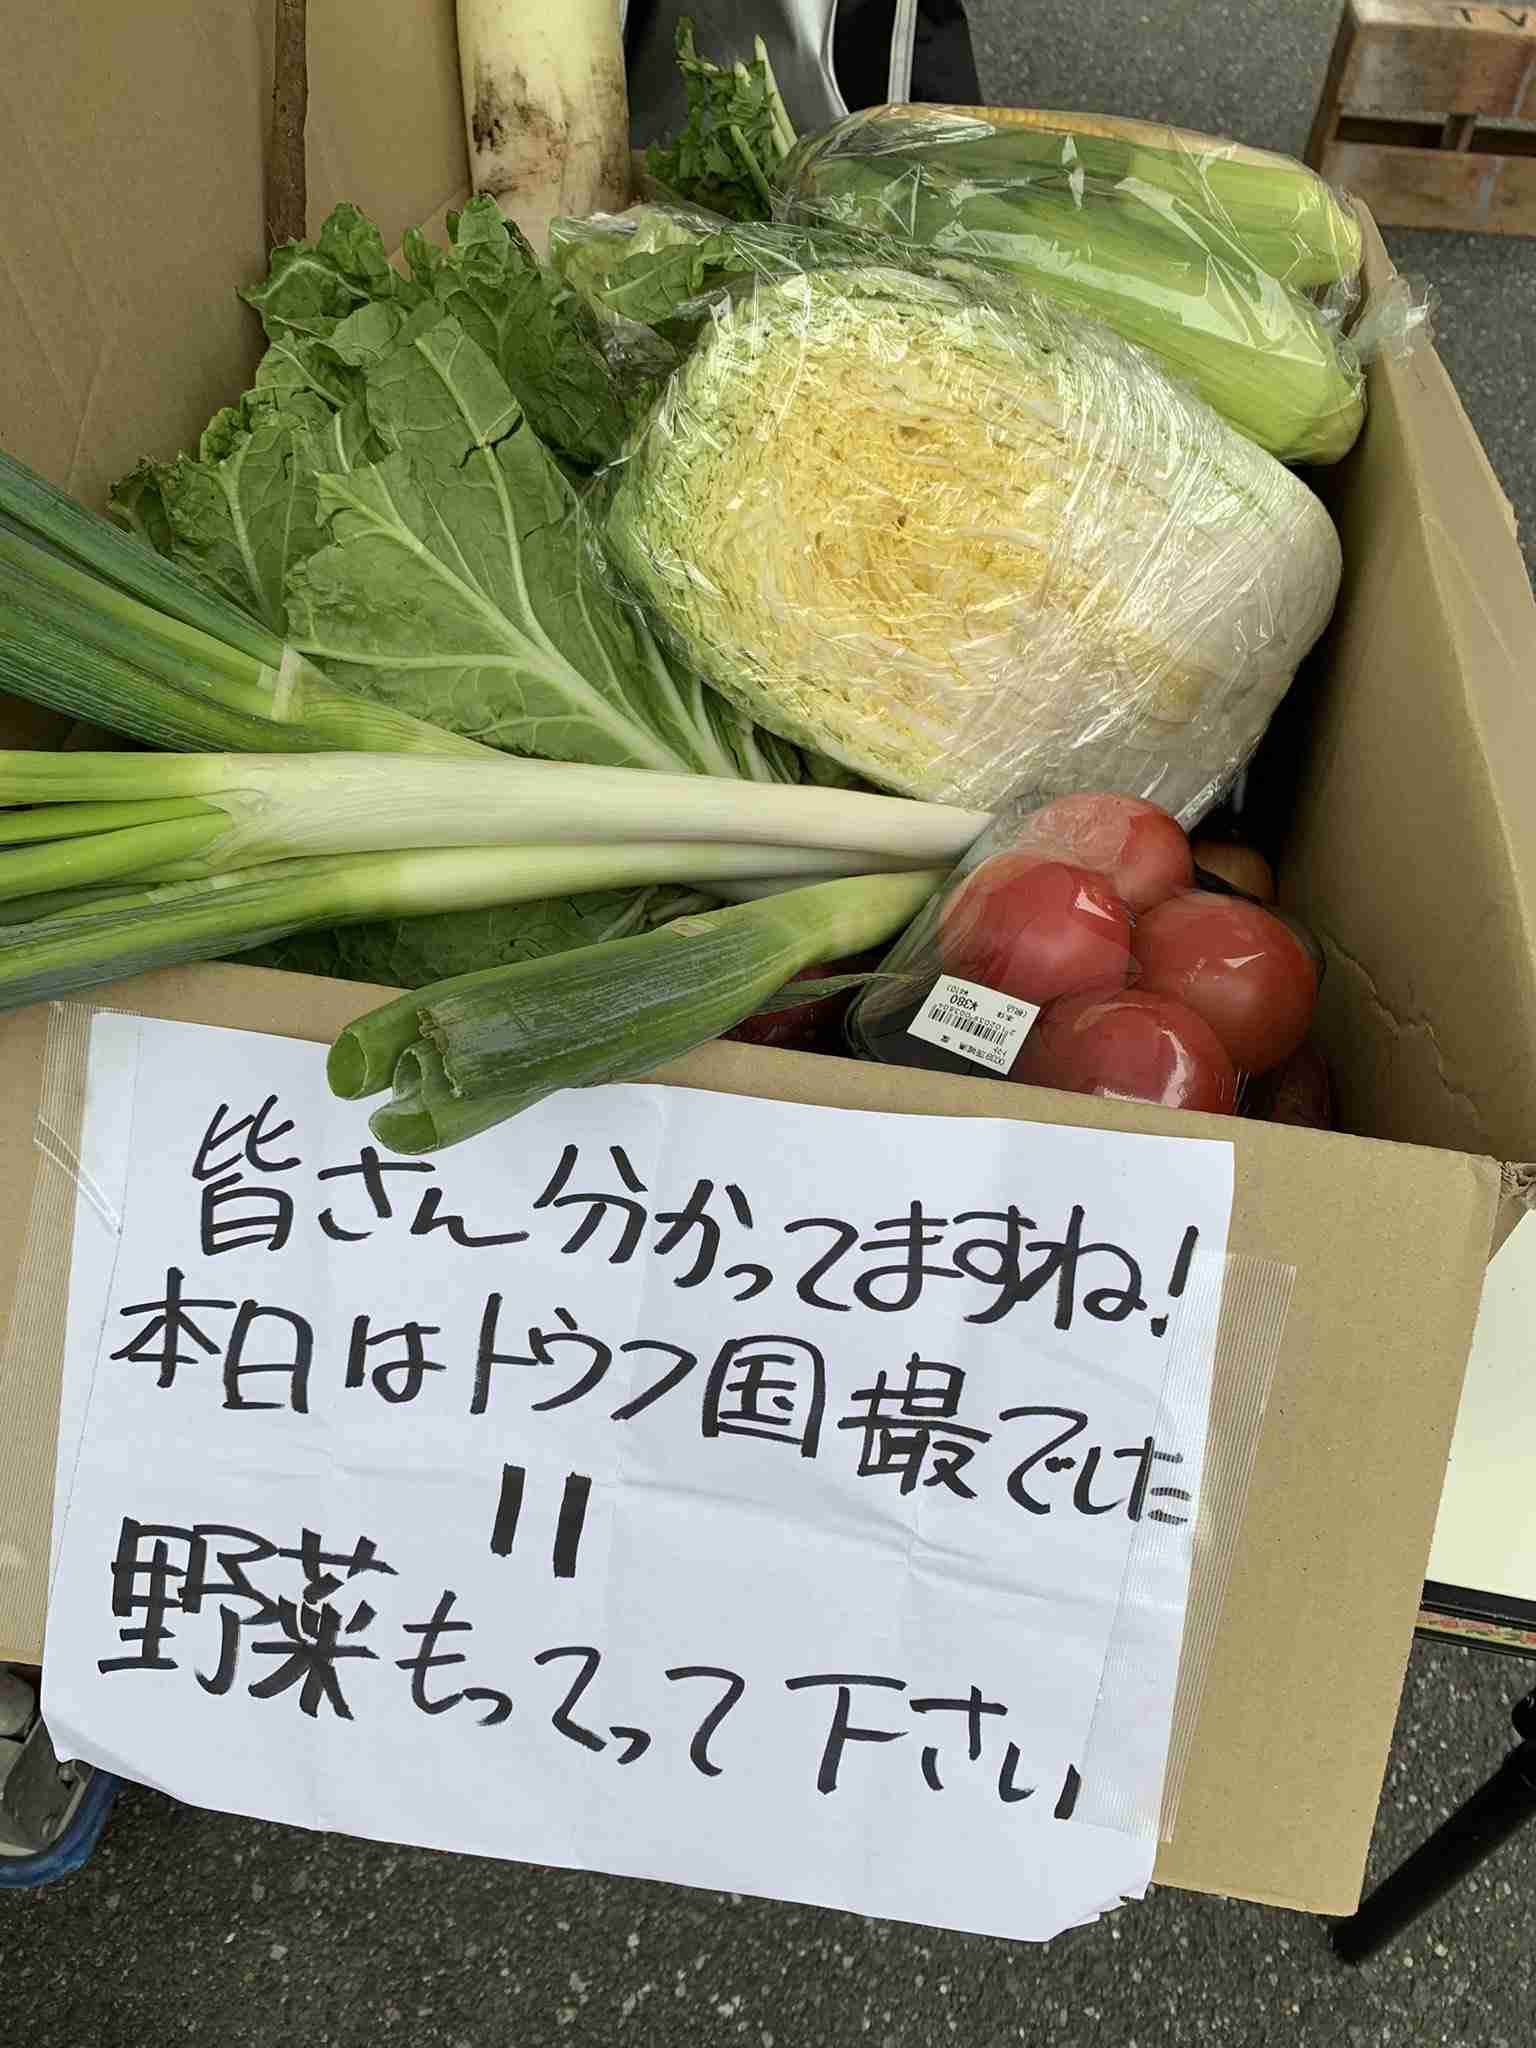 皆さん分かってますね!
本日はトウフ国撮でした
=
野菜もってって下さい
¥380